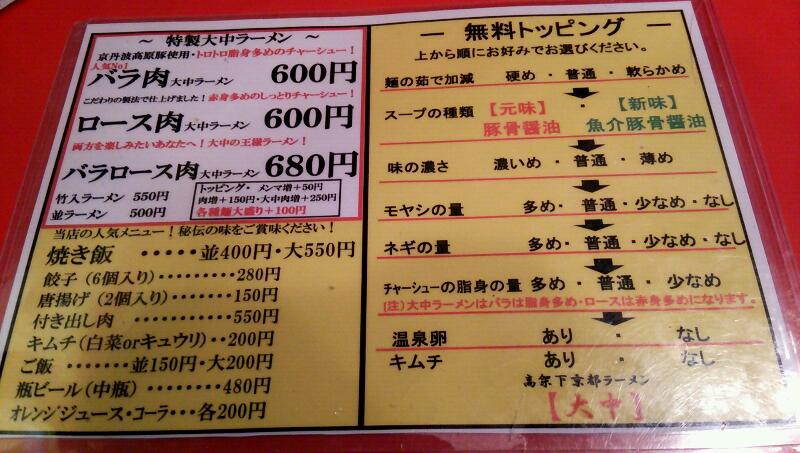 ～ 特製大中ラーメン ～
京丹波高原豚使用・トロトロ脂身多めのチャーシュー！
人気No1
バラ肉大中ラーメン 600円
こだわりの製法で仕上げました！赤身多めのしっとりチャーシュー！
ロース肉大中ラーメン 600円
両方を楽しみたいあなたへ！大中の王様ラーメン！
バラロース肉大中ラーメン 680円
竹入ラーメン 550円
並ラーメン 500円
トッピング・ メンマ増＋50円
肉増＋150円・大中肉増＋250円
各種麺大盛り＋100円
当店の人気メニュー！秘伝の味をご賞味ください！
焼き飯 ・・・・・並400円・大550円
餃子（6個入り）・・・・・・・・・280円
唐揚げ（2個入り）・・・・・・・150円
付き出し肉 ・・・・・・・・・・・550円
キムチ（白菜orキュウリ）・・200円
ご飯 ・・・・・・・並150円・大200円
瓶ビール（中瓶）・・・・・・・・480円
オレンジジュース・コーラ・・・各200円
― 無料トッピング ―
上から順にお好みでお選びください。
麺の茹で加減 硬め・普通・軟らかめ
スープの種類 【元味】豚骨醤油 ・ 【新味】魚介豚骨醤油
味の濃さ 濃いめ・普通・薄め
モヤシの量 多め・普通・少なめ・なし
ネギの量 多め・普通・少なめ・なし
チャーシューの脂身の量 多め・普通・少なめ
（注）大中ラーメンはバラは脂身多め・ロースは赤身多めになります。
温泉卵 あり ・ なし
キムチ あり ・ なし
高架下京都ラーメン
【大中】